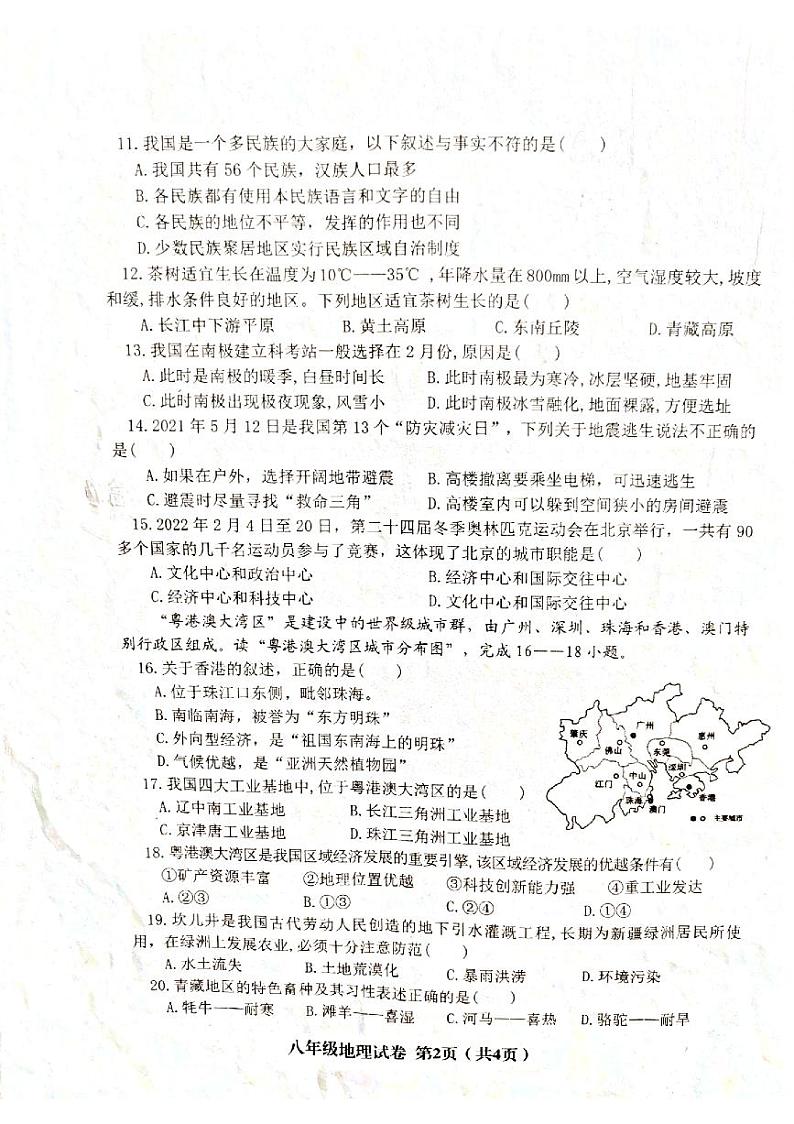 11.我国是一个多民族的大家庭，以下叙述与事实不符的是(　　)
A.我国共有56个民族，汉族人口最多
B.各民族都有使用本民族语言和文字的自由
C.各民族的地位不平等，发挥的作用也不同
D.少数民族聚居地区实行民族区域自治制度
12.茶树适宜生长在温度为10℃——35℃，年降水量在800mm以上,空气湿度较大,坡度
和缓,排水条件良好的地区。下列地区适宜茶树生长的是(　　)
A.长江中下游平原　B.黄土高原　C.东南丘陵　D.青藏高原
13.我国在南极建立科考站一般选择在2月份,原因是(　　)
A.此时是南极的暖季,白昼时间长　B.此时南极最为寒冷,冰层坚硬,地基牢固
C.此时南极出现极夜现象,风雪小　D.此时南极冰雪融化,地面裸露,方便选址
14.2021年5月12日是我国第13个“防灾减灾日”，下列关于地震逃生说法不正确的
是(　　)
A.如果在户外，选择开阔地带避震　B.高楼撤离要乘坐电梯，可迅速逃生
C.避震时尽量寻找“救命三角”　D.高楼室内可以躲到空间狭小的房间避震
15.2022年2月4日至20日，第二十四届冬季奥林匹克运动会在北京举行，一共有90
多个国家的几千名运动员参与了竞赛，这体现了北京的城市职能是(　　)
A.文化中心和政治中心　B.经济中心和国际交往中心
C.经济中心和科技中心　D.文化中心和国际交往中心
“粤港澳大湾区”是建设中的世界级城市群，由广州、深圳、珠海和香港、澳门特
别行政区组成。读“粤港澳大湾区城市分布图”，完成16——18小题。
16.关于香港的叙述，正确的是(　　)
A.位于珠江口东侧，毗邻珠海。
B.南临南海，被誉为“东方明珠”
C.外向型经济，是“祖国东南海上的明珠”
D.气候优越，是“亚洲天然植物园”
肇庆
广州
惠州
佛山
东莞
深圳
江门
中山
珠海
香港
澳门
主要城市
17.我国四大工业基地中,位于粤港澳大湾区的是(　　)
A.辽中南工业基地　B.长江三角洲工业基地
C.京津唐工业基地　D.珠江三角洲工业基地
18.粤港澳大湾区是我国区域经济发展的重要引擎,该区域经济发展的优越条件有(　　)
①矿产资源丰富　②地理位置优越　③科技创新能力强　④重工业发达
A.②③　B.①③　C.②④　D.①④
19.坎儿井是我国古代劳动人民创造的地下引水灌溉工程,长期为新疆绿洲居民所使
用，在绿洲上发展农业,必须十分注意防范(　　)
A.水土流失　B.土地荒漠化　C.暴雨洪涝　D.环境污染
20.青藏地区的特色畜种及其习性表述正确的是(　　)
A.牦牛——耐寒　B.滩羊——喜湿　C.河马——喜热　D.骆驼——耐旱
八年级地理试卷 第2页（共4页）